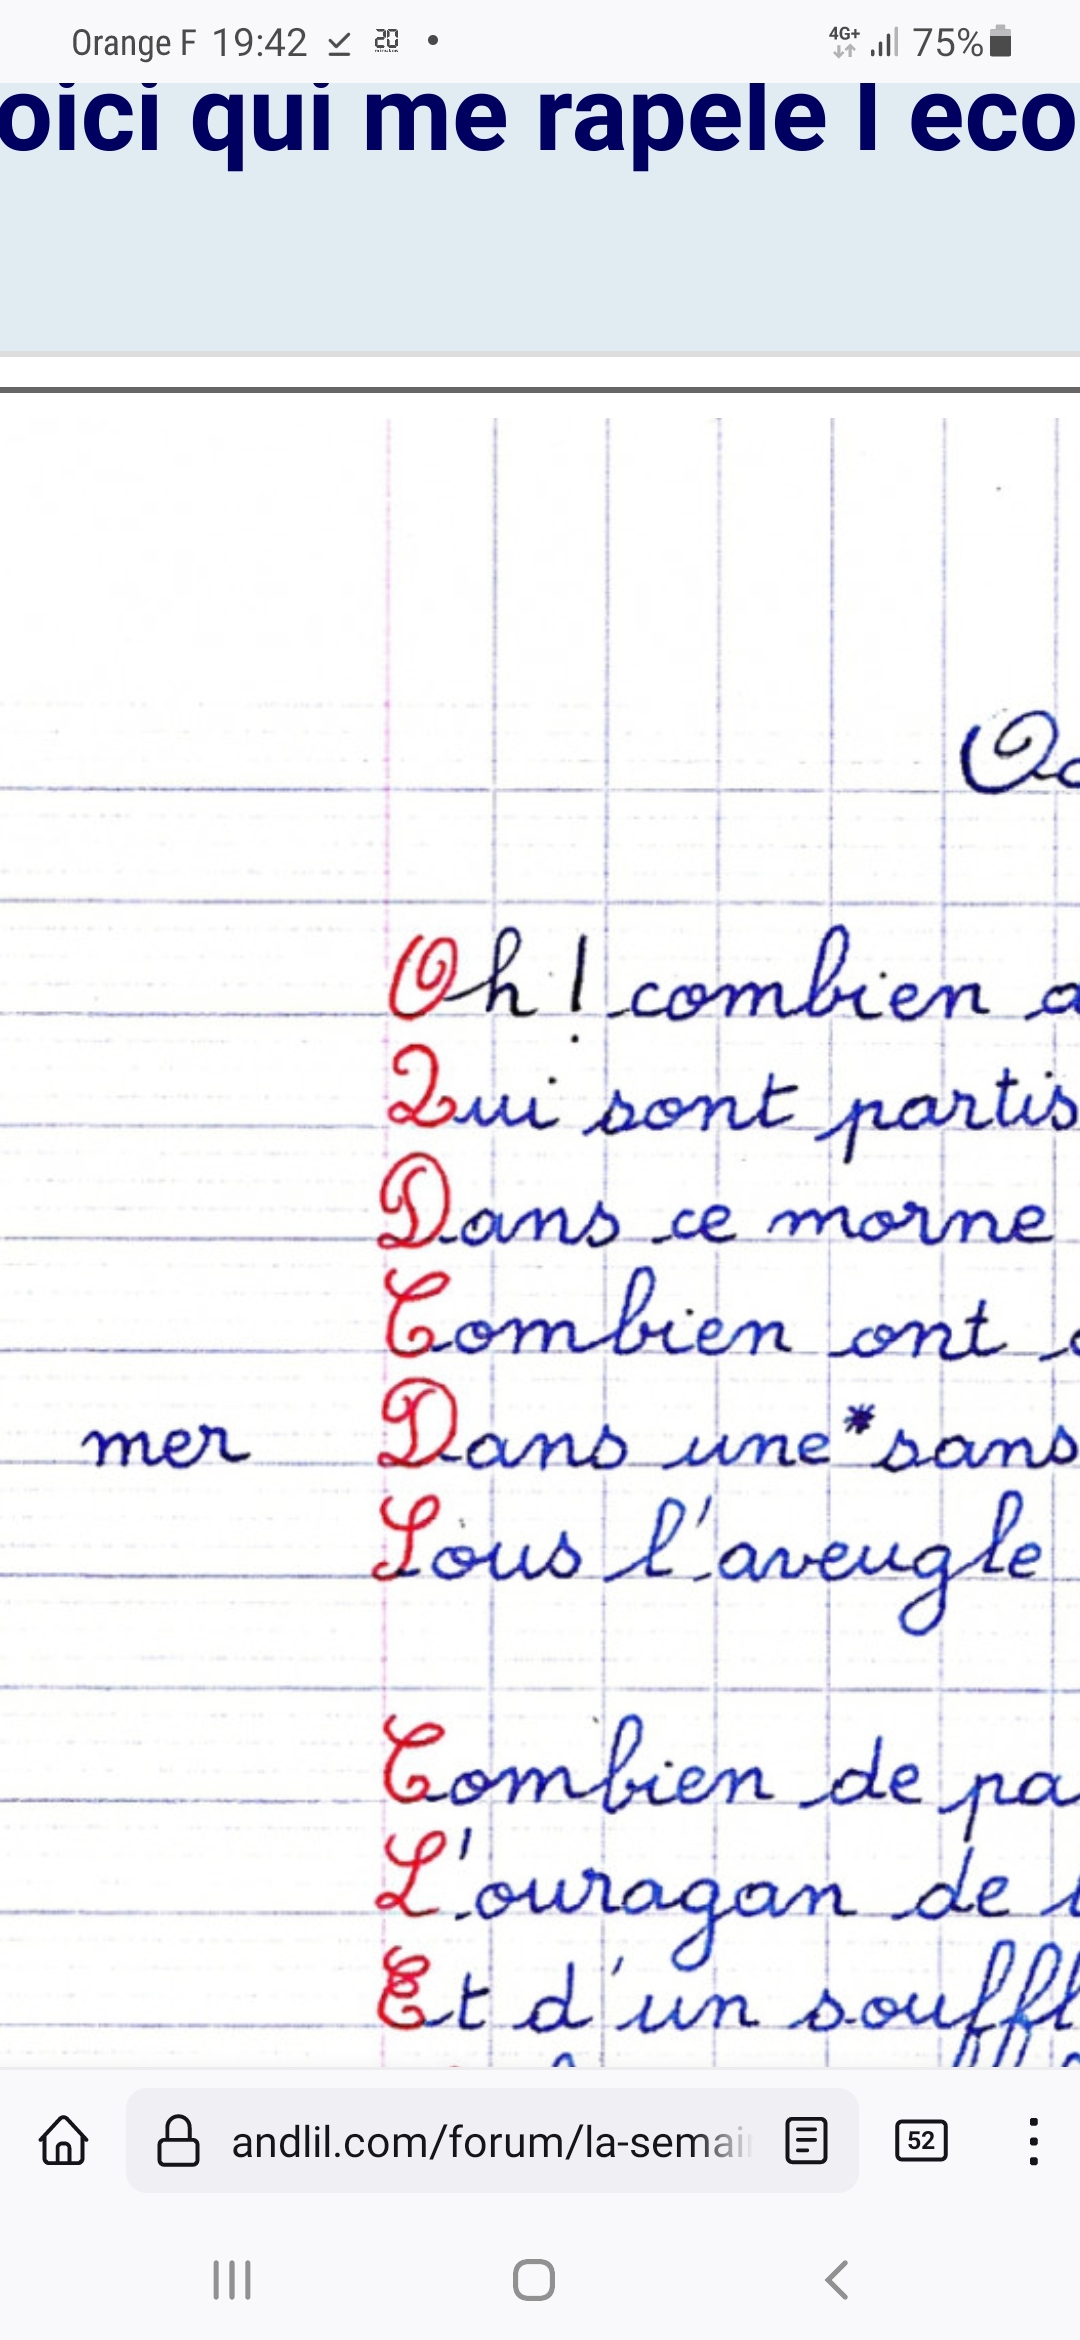 Orange F 19:42 20 4G+ 75%
oici qui me rapele l eco
Oc
Oh ! combien
Qui sont partis
Dans ce morne
Combien ont
mer Dans une*sans
Sous l'aveugle
Combien de pa
L'ouragan de l
Et d'un souffl
andlil.com/forum/la-semai 52